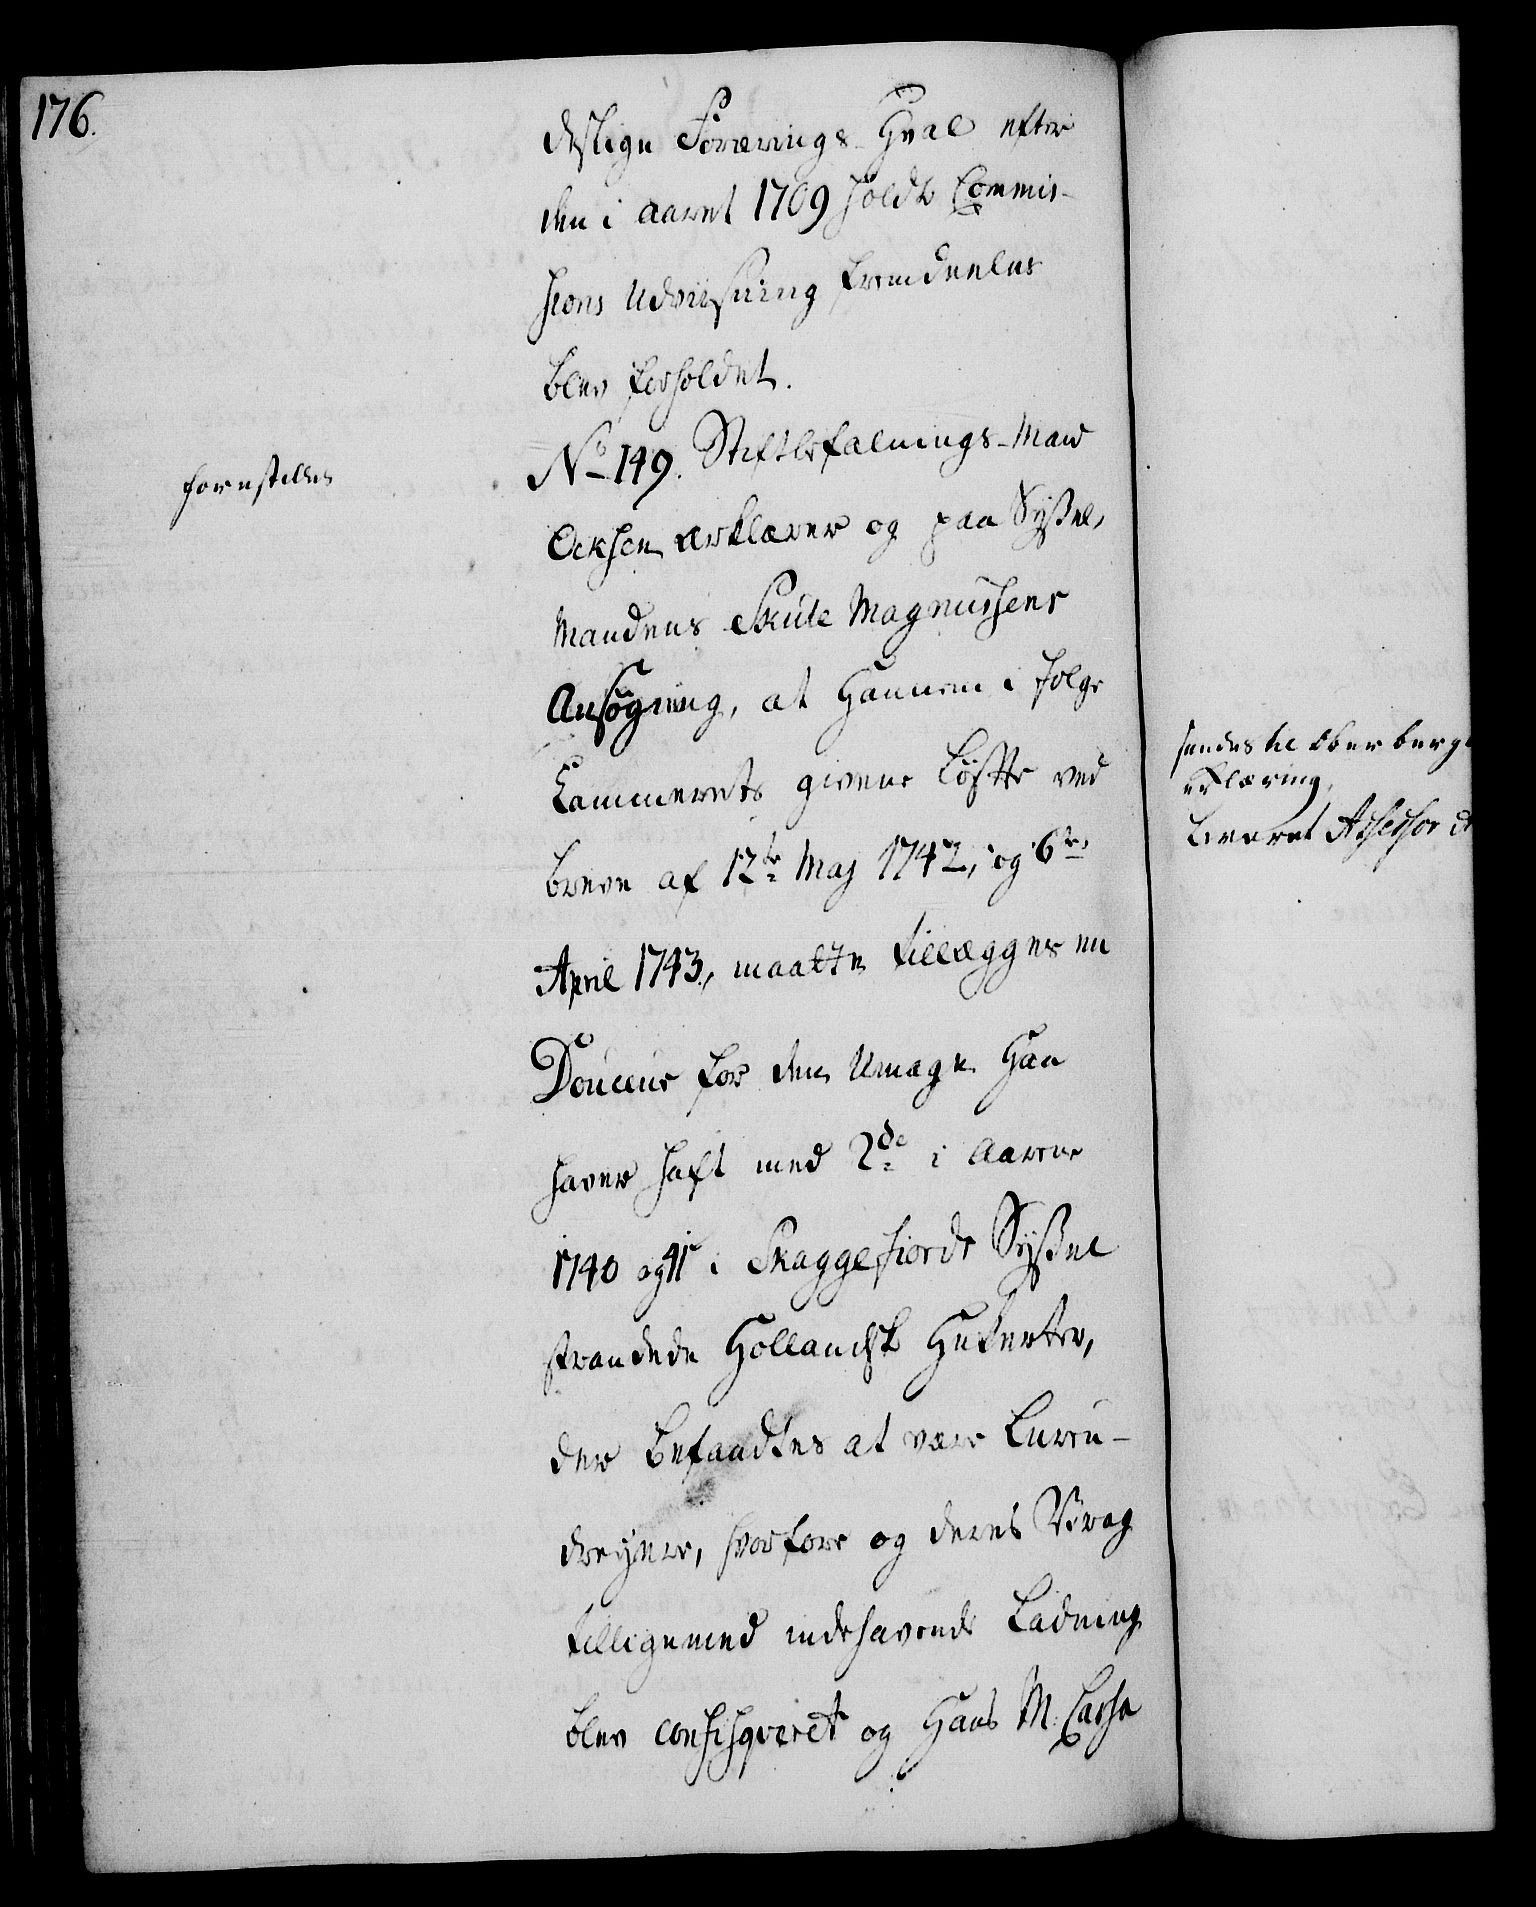 176.
deslige Forærings Hval efter
den i Aaret 1709 holdte Commis-
sions Udviisning fremdeeles
blev forholdet.
forestilles
No 149. Stiftbefalnings-Mand
Ocksen erklærer og paa Syßel,
Mandens Skule Magnussens
Ansøgning, at Hannem i følge
Cammerets givene Løfte ved
breve af 12te Maj 1742, og 6te
April 1743, maatte tillægges en
Douceur for den Umage Han
haver haft med 2de i Aarene
1740 og 41 i Skaggefiords Syßel
strandede Hollandsk Hukerter,
der befandtes at være Luren-
dreyere, hvorfore og deres Vrag
tilligemed indehavende Ladning
blev confisqveret og Hans M. Cassa
sendes til Ober berg
erklæring,
leveret Assessor